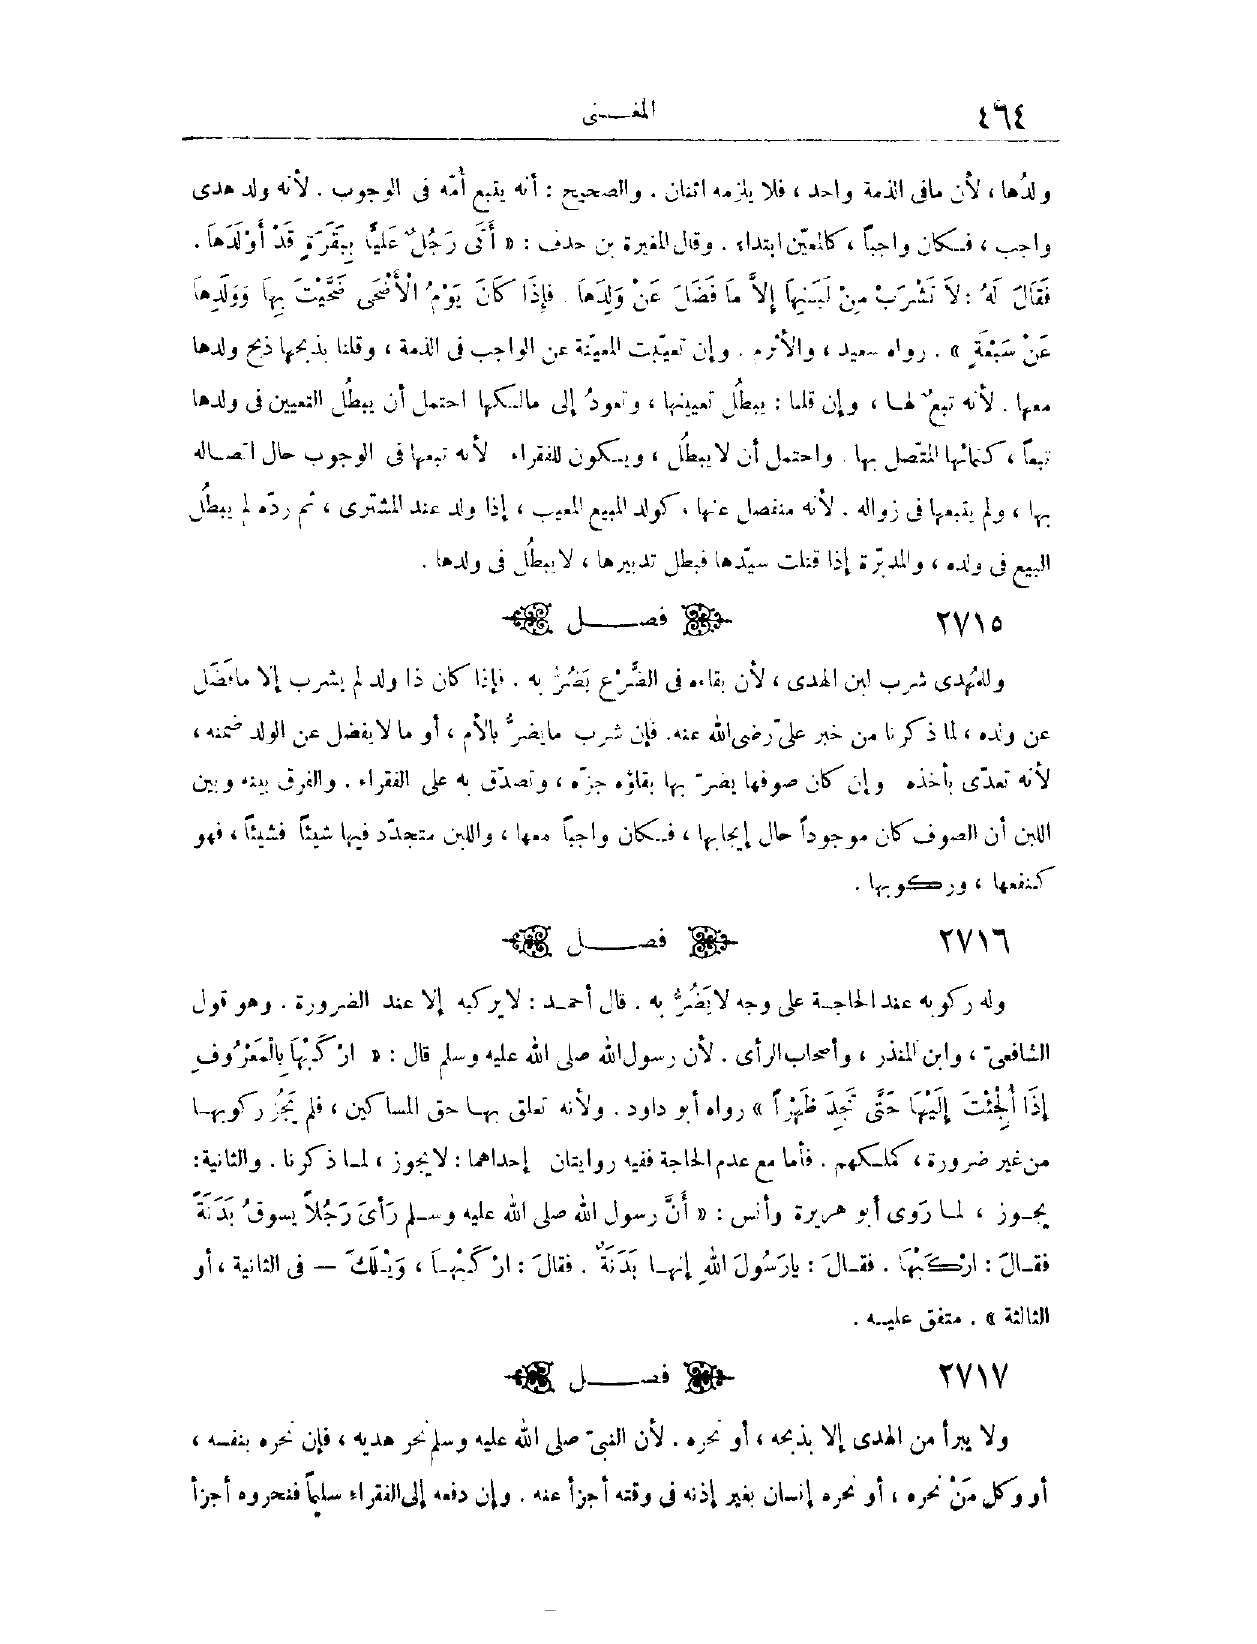 ٤٦٤
المغــنى
ولدُها ، لأن مافى الذمة واحد ، فلا يلزمه اثنان . والصحيح : أنه يتبع أُمّه فى الوجوب . لأنه ولد هدى
واجب ، فكان واجباً ، كالمعيّن ابتداء . وقال المغيرة بن حدف : « أَتَى رَجُلٌ عَلِيًّا بِبَقَرَةٍ قَدْ أَوْلَدَهَا .
فَقَالَ لَهُ : لاَ تَشْرَبْ مِنْ لَبَنِهَا إِلاَّ مَا فَضَلَ عَنْ وَلَدِهَا . فَإِذَا كَانَ يَوْمُ الْأَضْحَى ضَحَّيْتَ بِهَا وَوَلَدِهَا
عَنْ سَبْعَةٍ » . رواه سعيد ، والأثرم . وإن تعيّبت المعيّنة عن الواجب فى الذمة ، وقلنا بذبحها ذبح ولدها
معها . لأنه تبعٌ لهـا ، وإن قلنا : يبطُل تعيينها ، وتعودُ إلى مالكها احتمل أن يبطُل التعيين فى ولدها
تبعاً ، كنمائها المتّصل بها . واحتمل أن لا يبطُل ، ويكون للفقراء لأنه تبعها فى الوجوب حال اتصـاله
بها ، ولم يتبعها فى زواله . لأنه منفصل عنها ، كولد المبيع المعيب ، إذا ولد عند المشترى ، ثم ردّه لم يبطُل
البيع فى ولده ، والمدبّرة إذا قتلت سيّدها فبطل تدبيرها ، لا يبطُل فى ولدها .
٢٧١٥ فصـــل
وللمُهدى شرب لبن الهدى ، لأن بقاءه فى الضَّرْع يَضُرُّ به . فإذا كان ذا ولد لم يشرب إلا مافَضَل
عن ولده ، لما ذكرنا من خبر علىّ رضى الله عنه. فإن شرب مايضرُّ بالأم ، أو ما لا يفضل عن الولد ضمنه ،
لأنه تعدّى بأخذه وإن كان صوفها يضرّ بها بقاؤه جزّه ، وتصدّق به على الفقراء . والفرق بينه وبين
اللبن أن الصوف كان موجوداً حال إيجابها ، فكان واجباً معها ، واللبن متجدّد فيها شيئاً فشيئاً ، فهو
كنفعها ، وركوبها .
٢٧١٦ فصـــل
وله ركوبه عند الحاجـة على وجه لا يَضُرُّ به . قال أحمـد : لا يركبه إلا عند الضرورة . وهو قول
الشافعىّ ، وابن المنذر ، وأصحاب الرأى . لأن رسول الله صلى الله عليه وسلم قال : « ارْكَبْهَا بِالْمَعْرُوفِ
إِذَا أُلْجِئْتَ إِلَيْهَا حَتَّى تَجِدَ ظَهْراً » رواه أبو داود . ولأنه تعلق بهـا حق المساكين ، فلم يَجُزْ ركوبهـا
من غير ضرورة ، كملكهم . فأما مع عدم الحاجة ففيه روايتان إحداهما : لا يجوز ، لمـا ذكرنا . والثانية :
يجـوز ، لمـا رَوى أبو هريرة وأنس : « أَنَّ رسول الله صلى الله عليه وسـلم رَأَى رَجُلاً يسوقُ بَدَنَةً
فقـالَ : ارْكَبْهَا . فقـالَ : يارَسُولَ اللهِ إنهـا بَدَنَةٌ . فقالَ : ارْكَبْهَـا ، وَيْـلَكَ — فى الثانية ، أو
الثالثة » . متفق عليـه .
٢٧١٧ فصـــل
ولا يبرأ من الهدى إلا بذبحه ، أو نحره . لأن النبىّ صلى الله عليه وسلم نحر هديه ، فإن نحره بنفسه ،
أو وكل مَنْ نحره ، أو نحره إنسان بغير إذنه فى وقته أجزأ عنه . وإن دفعه إلى الفقراء سليماً فنحروه أجزأ